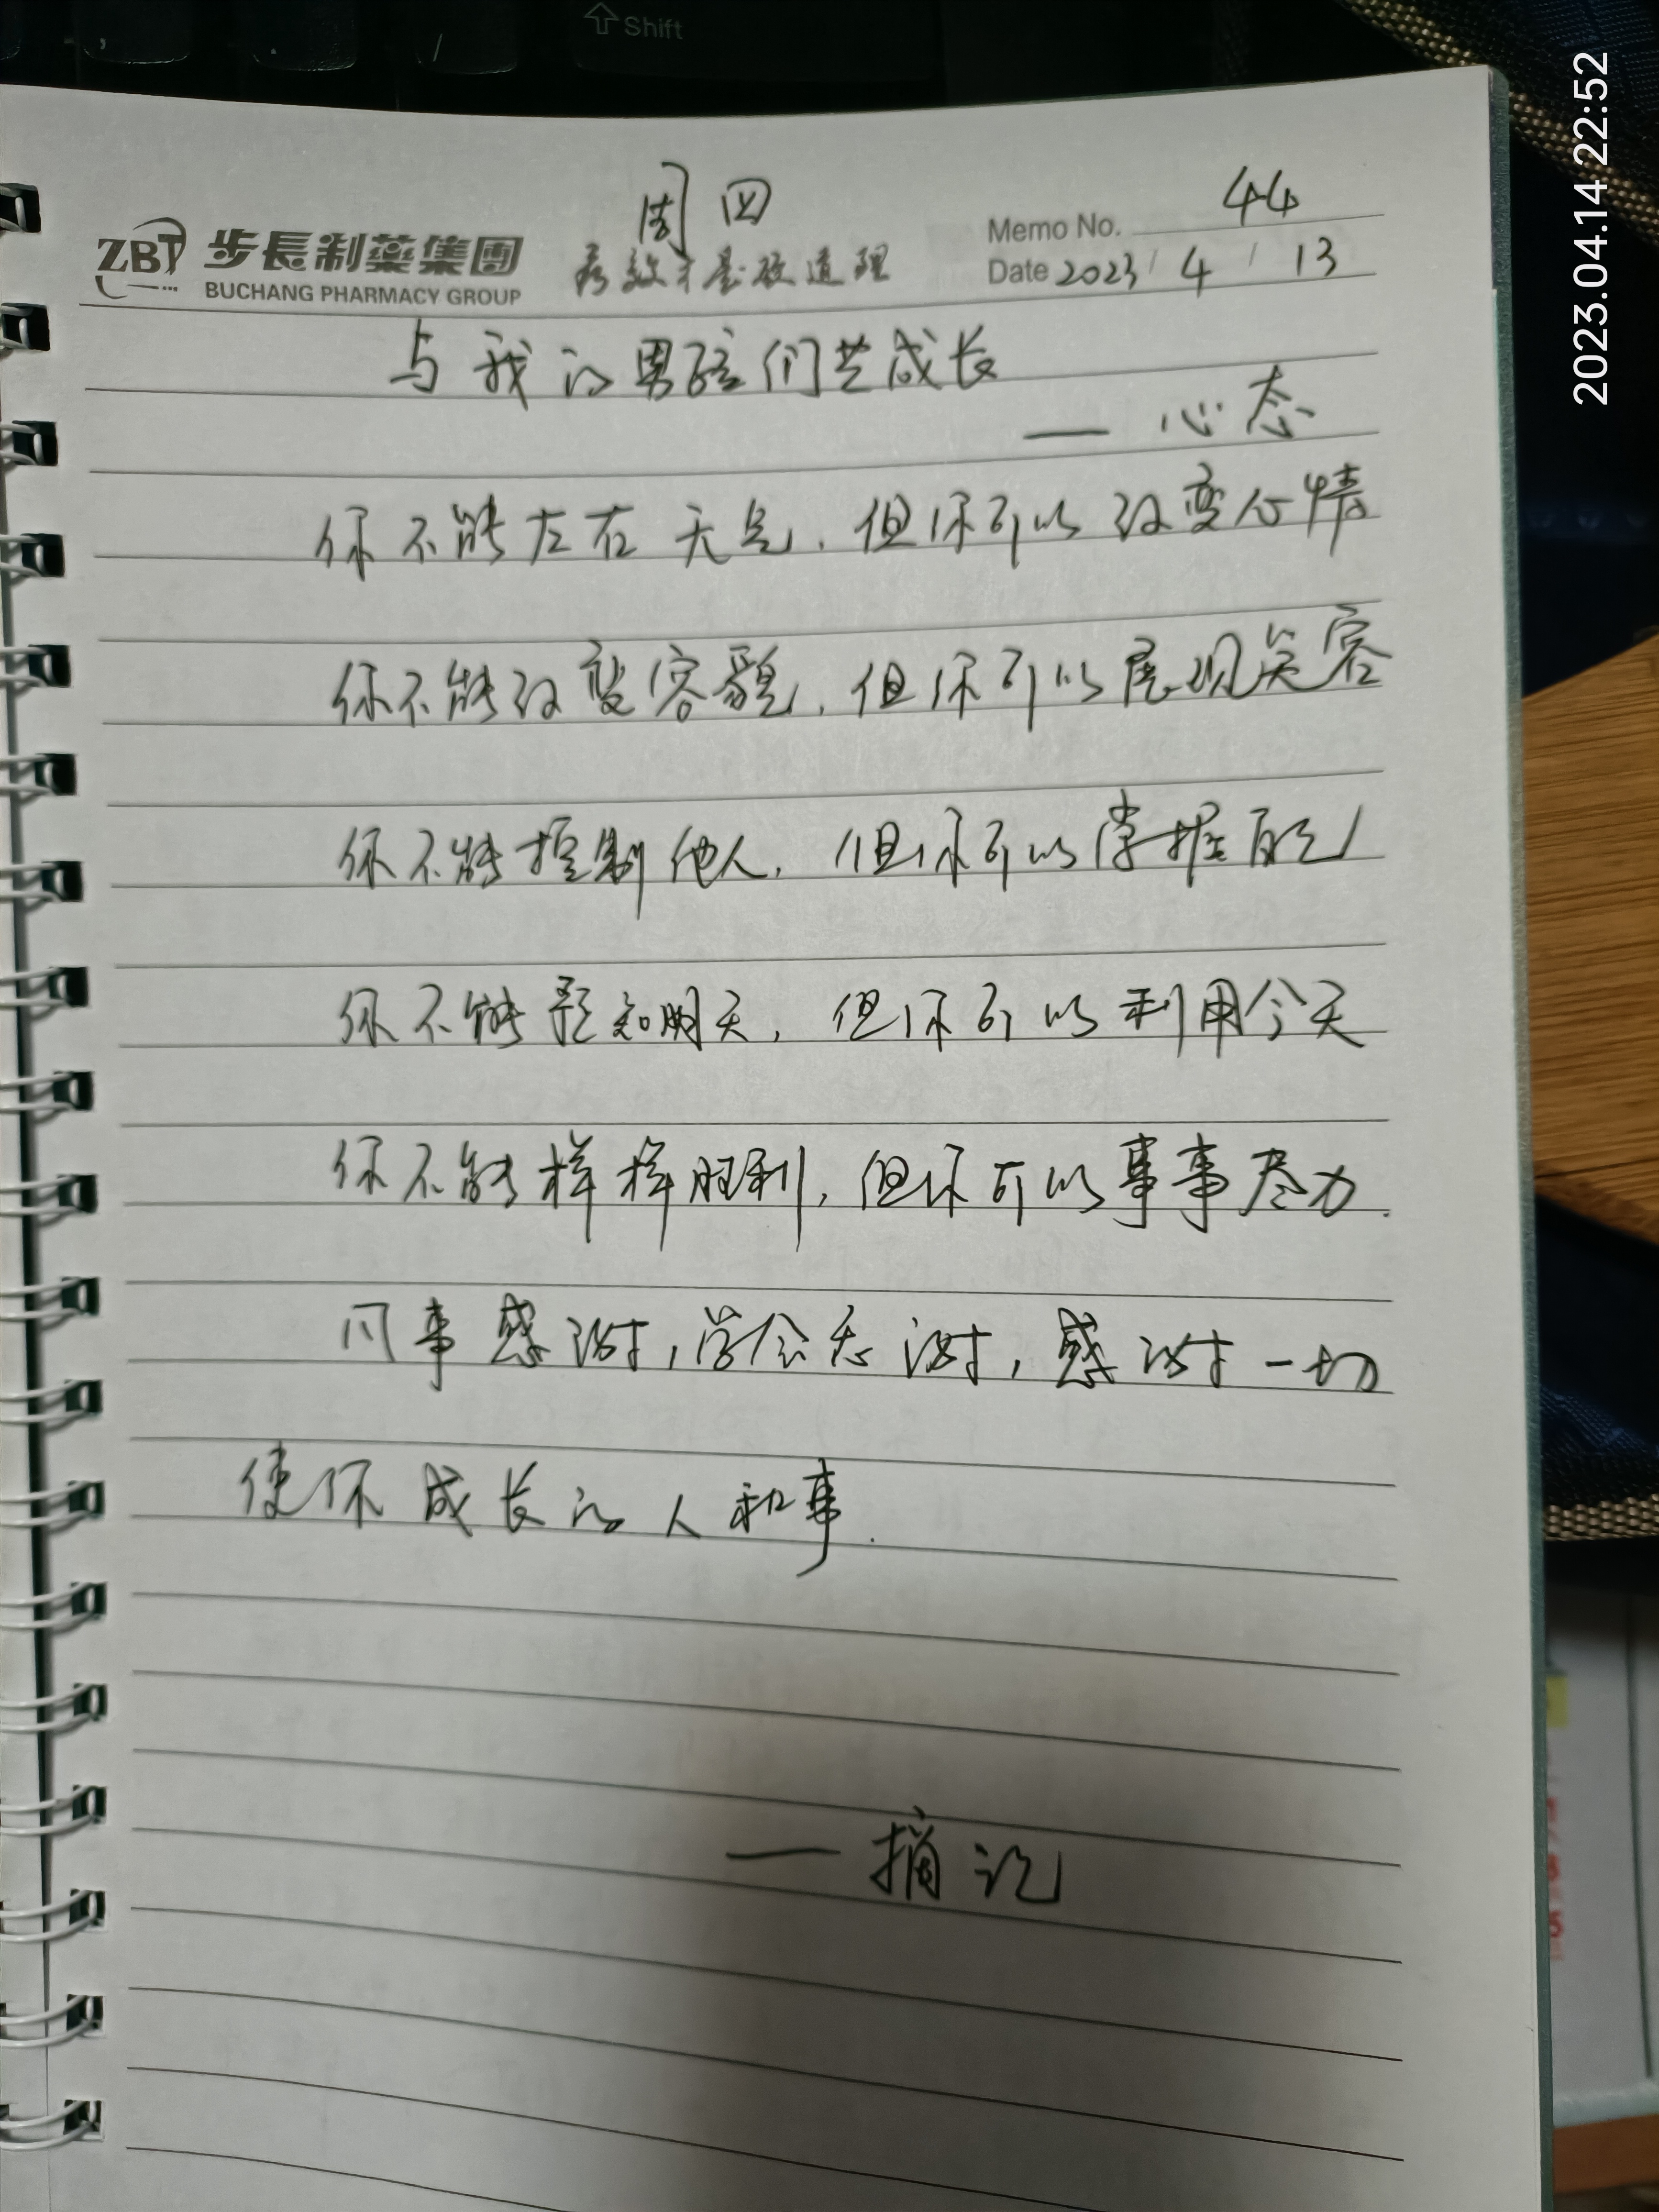 Shift
2023.04.14 22:52
周四
ZBT 步長制藥集團
BUCHANG PHARMACY GROUP
有效才是硬道理
Memo No. 44
Date 2023/4/13
与我的男孩们共成长
— 心态
你不能左右天气,但你可以改变心情
你不能改变容貌,但你可以展现笑容
你不能控制他人,但你可以掌握自己
你不能预知明天,但你可以利用今天
你不能样样胜利,但你可以事事尽力.
凡事感谢,学会感谢,感谢一切
使你成长的人和事.
— 摘记